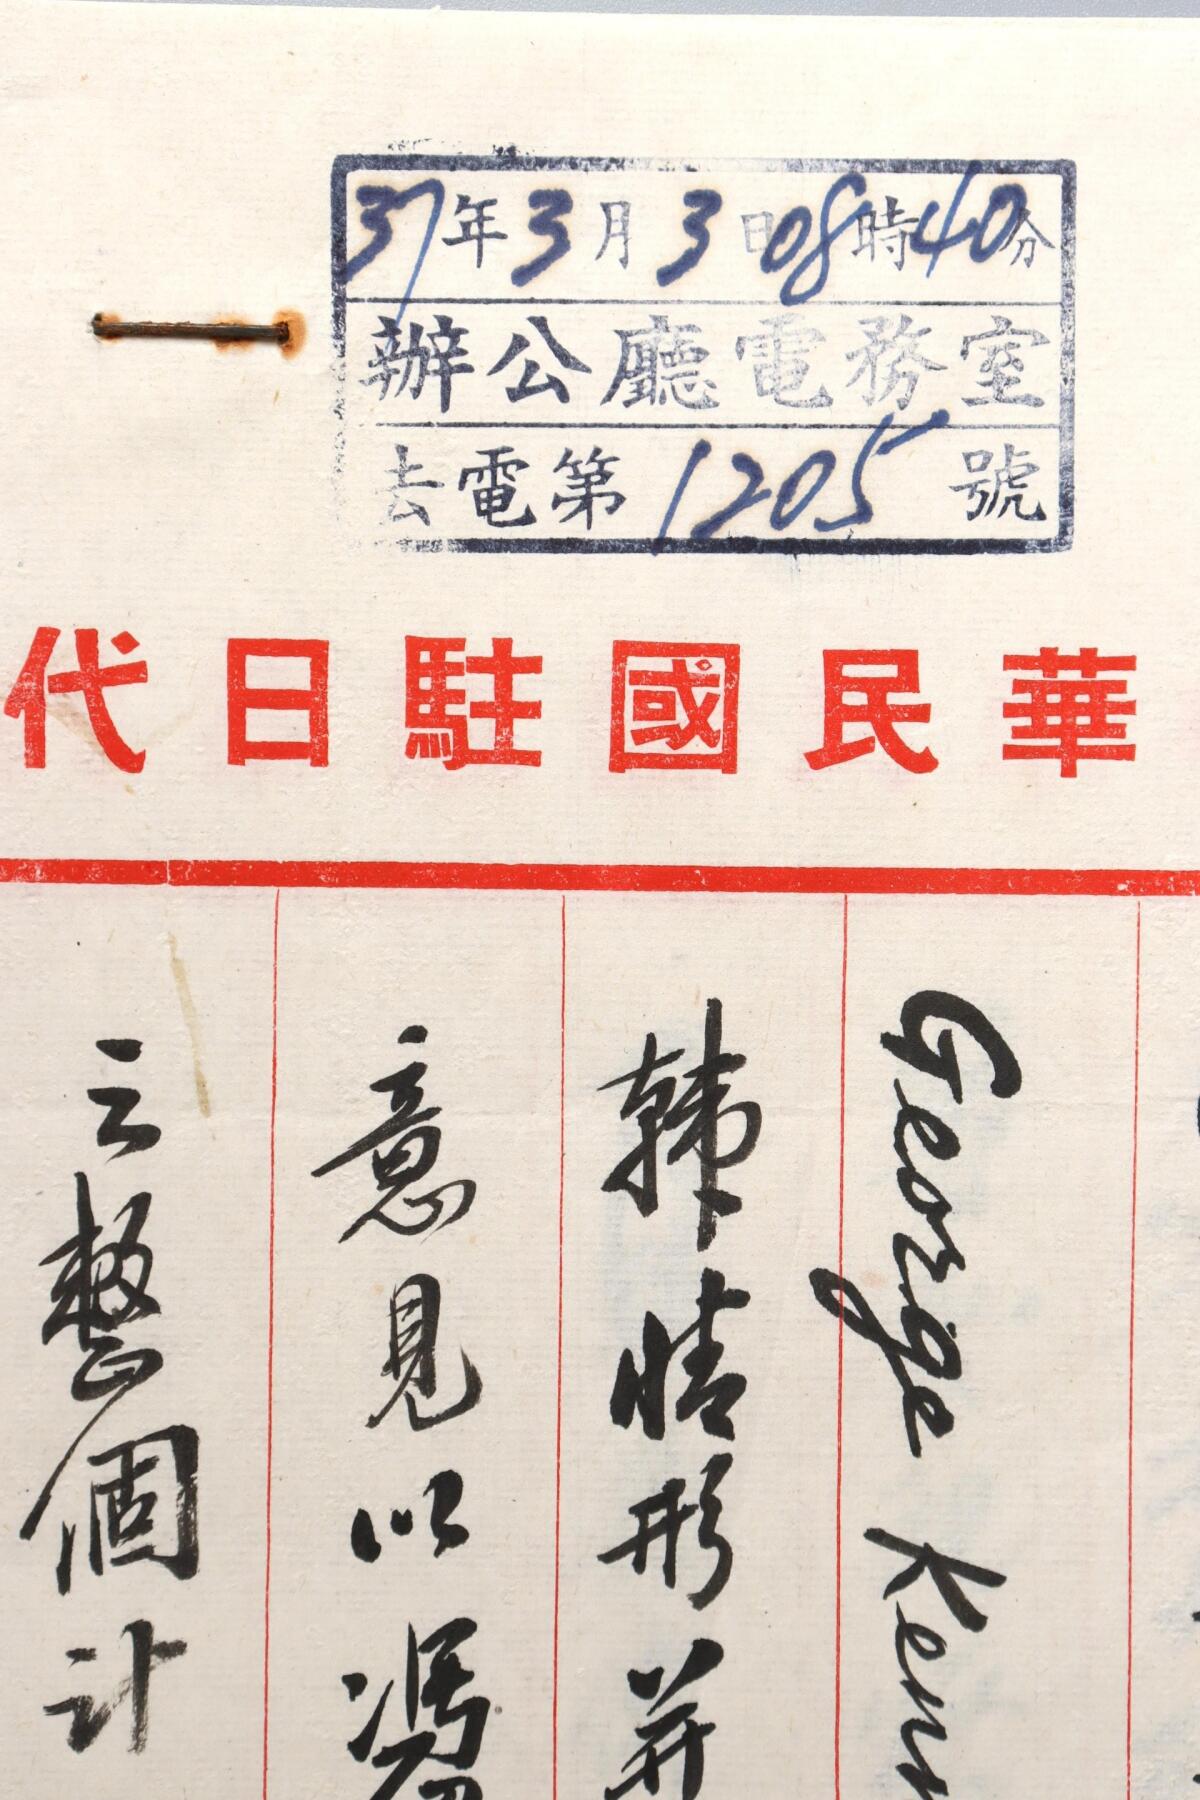 37年3月3日08時40分
辦公廳電務室
去電第1205號
華民國駐日代
George Ken
韓情形并
意見以憑
之整個計